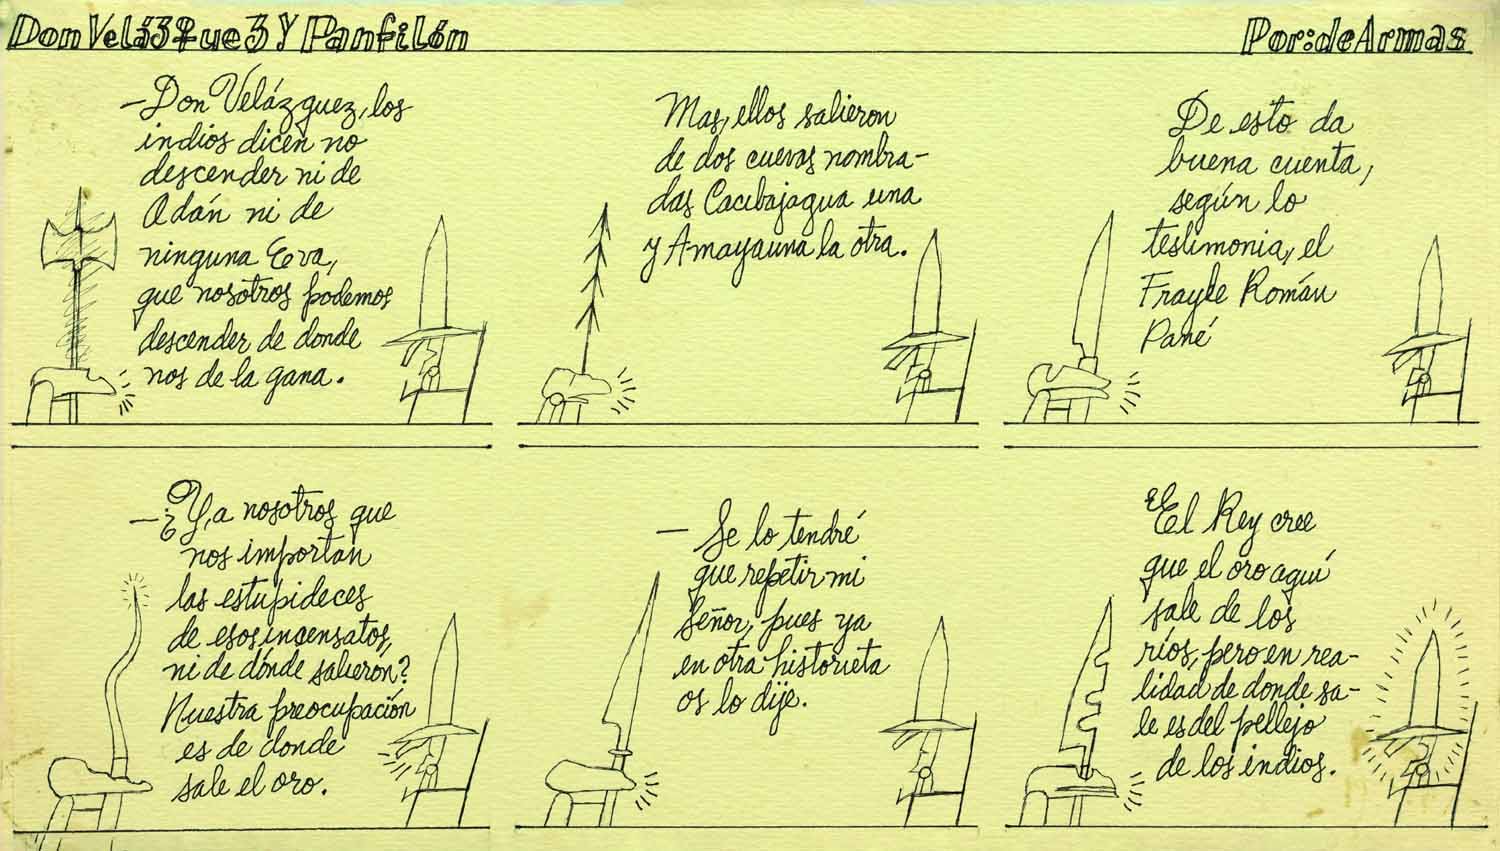 Don Velázquez Y Panfilón
Por: de Armas
—Don Velázquez, los
indios dicen no
descender ni de
Adán ni de
ninguna Eva,
que nosotros podemos
descender de donde
nos de la gana.
Mas, ellos salieron
de dos cuevas nombra-
das Cacibajagua una
y Amayauna la otra.
De esto da
buena cuenta,
según lo
testimonia, el
Frayle Román
Pané
—¿Y, a nosotros que
nos importan
las estupideces
de esos insensatos,
ni de dónde salieron?
Nuestra preocupación
es de donde
sale el oro.
— Se lo tendré
que repetir mi
Señor, pues ya
en otra historieta
os lo dije.
El Rey cree
que el oro aquí
sale de los
ríos, pero en rea-
lidad de donde sa-
le es del pellejo
de los indios.